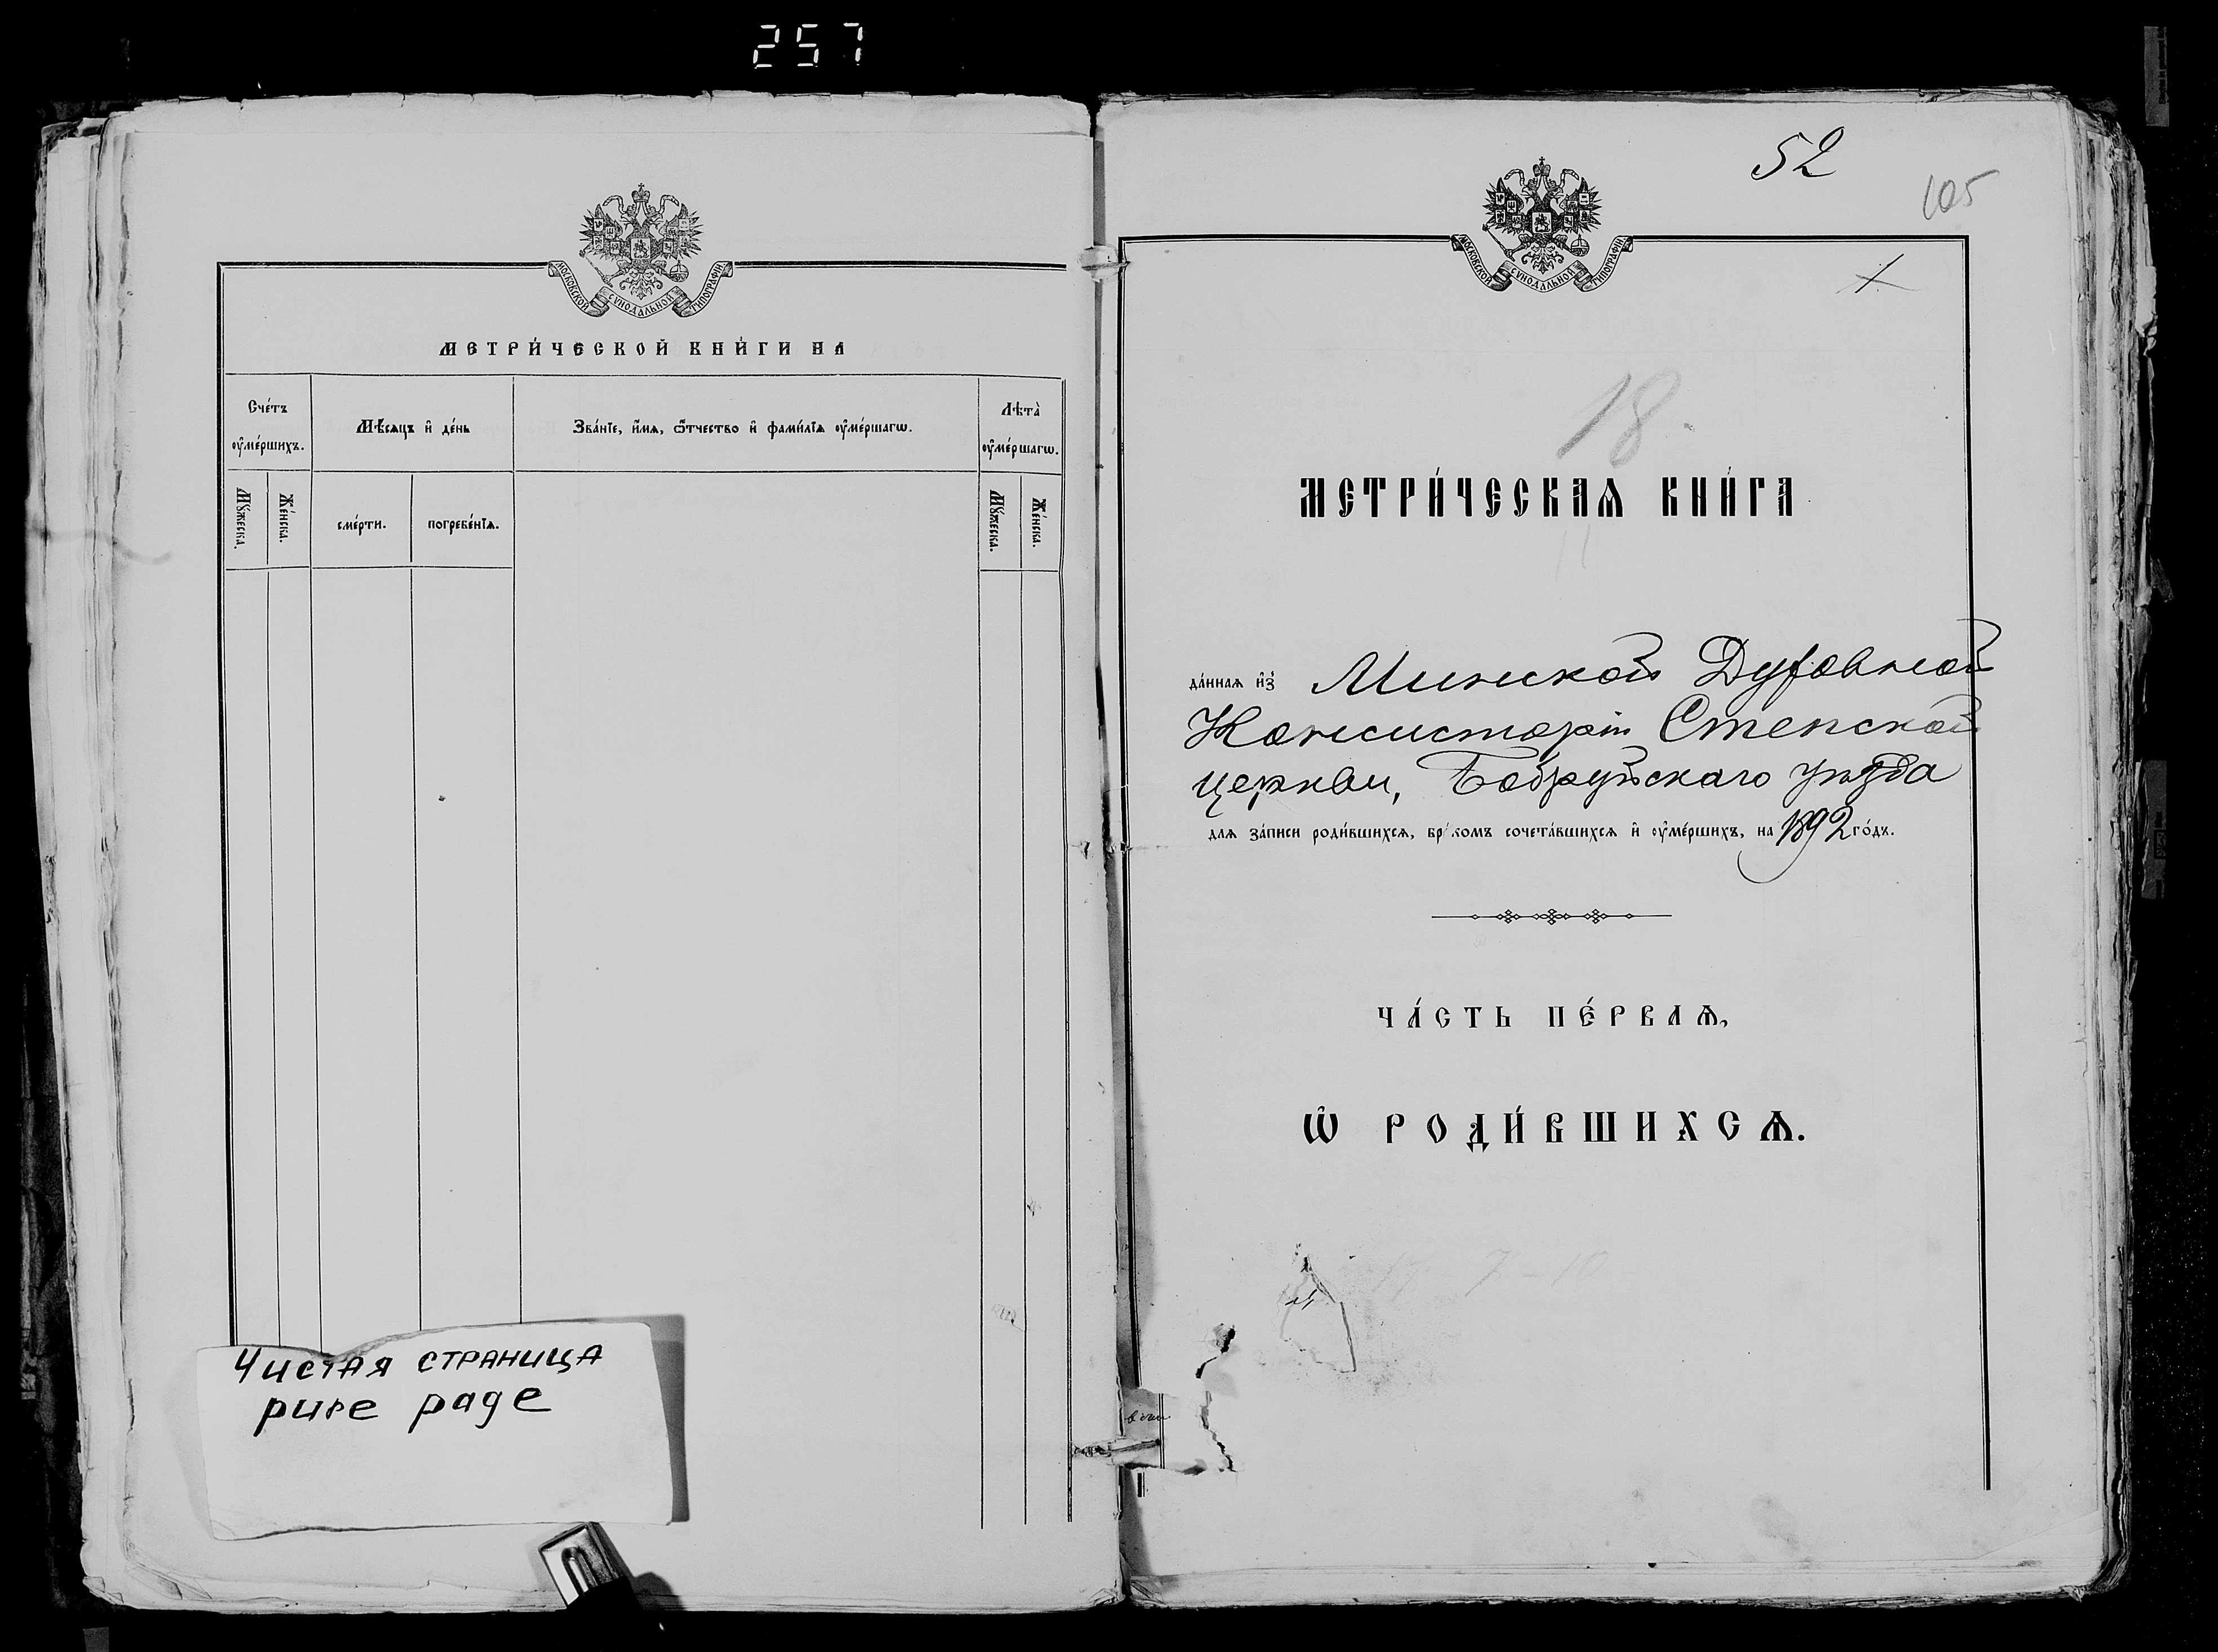 257
МОСКОВСКОЙ СѴНОДАЛЬНОЙ ТИПОГРАФІИ
МЕТРИ́ЧЕСКОЙ КНИ́ГИ НА
Сче́тъ ᲂу҆ме́ршихъ.
Мѣ́сяцъ и҆ де́нь
Зва́нїе, и҆́мѧ, ѻ҆́тчество и҆ фами́лїѧ ᲂу҆ме́ршагѡ.
Лѣта̀ ᲂу҆ме́ршагѡ.
Мꙋ́жеска.
Же́нска.
сме́рти.
погребе́нїѧ.
Мꙋ́жеска.
Же́нска.
Чистая страница
pure page
52
105
МОСКОВСКОЙ СѴНОДАЛЬНОЙ ТИПОГРАФІИ
18
МЕТРИ́ЧЕСКАѦ КНИ́ГА
да́ннаѧ и҆з̾ Минской Духовной
Консисторіи Степской
церкви, Бобруйскаго уѣзда
длѧ за́писи роди́вшихсѧ, бра́комъ сочета́вшихсѧ и҆ ᲂу҆ме́ршихъ, на 1892 го́дъ.
ЧА́СТЬ ПЕ́РВАѦ,
Ѡ҆ РОДИ́ВШИХСѦ.